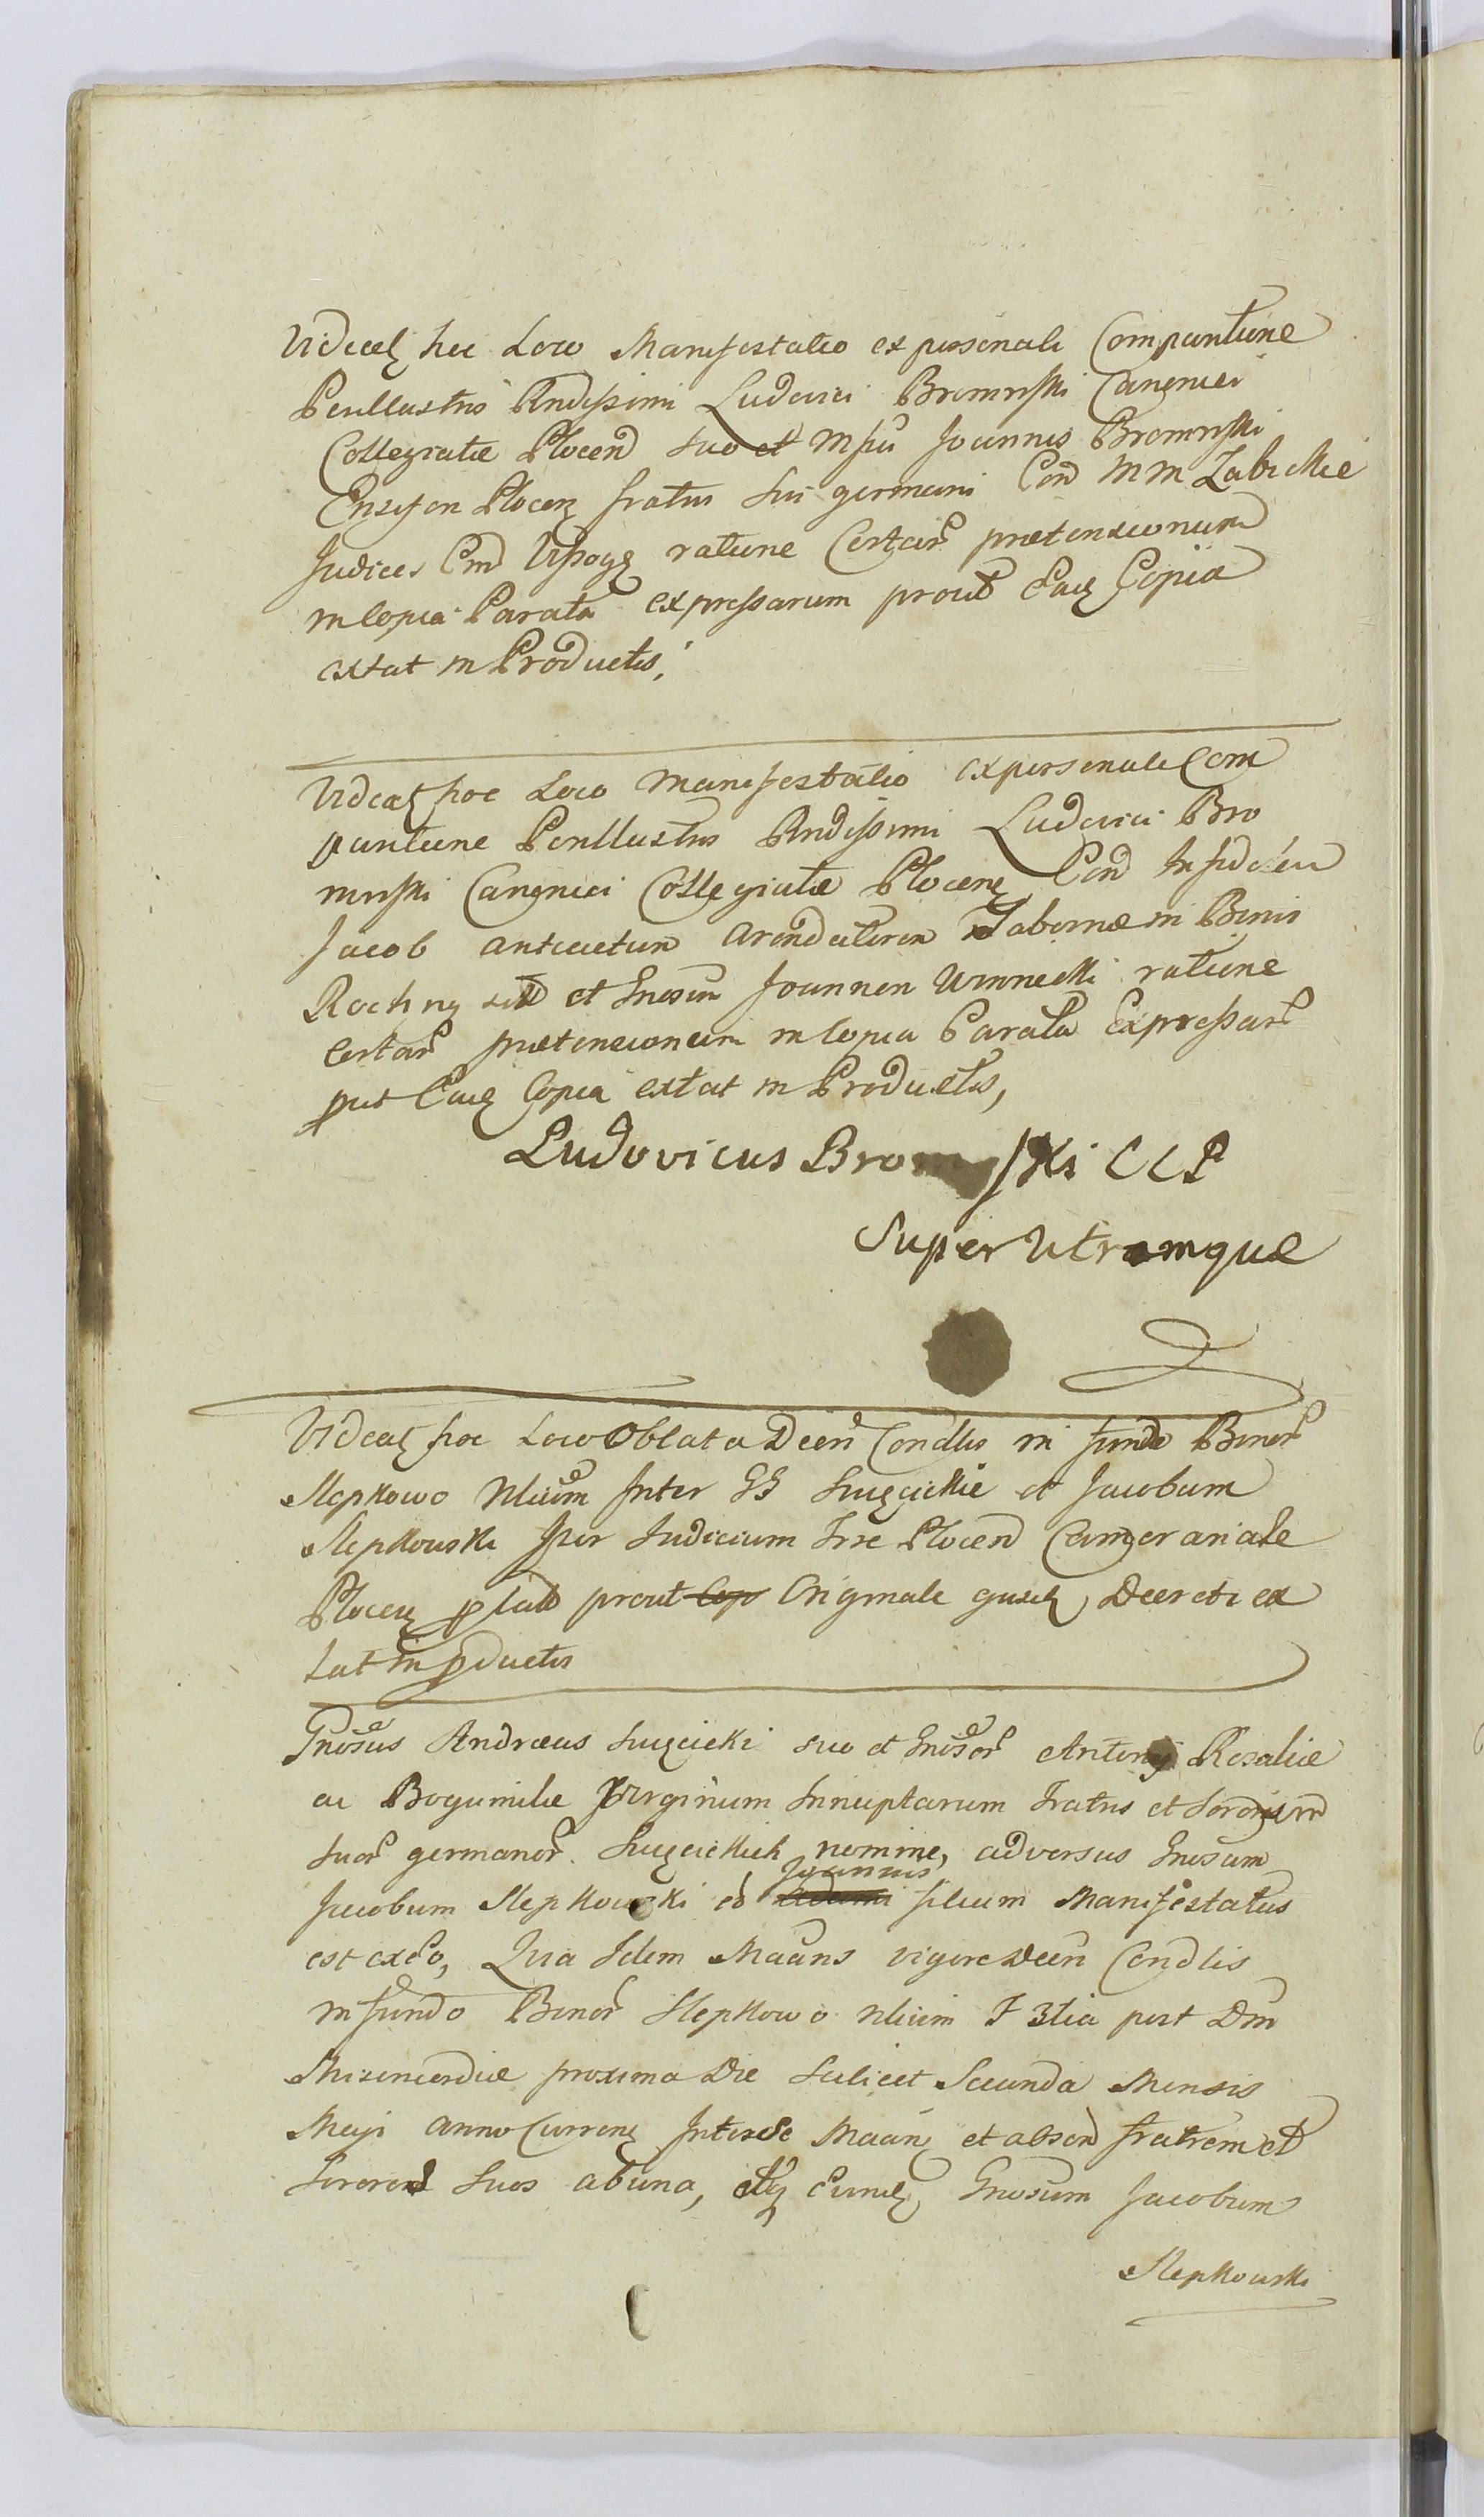 Videatq hoc Loco Manifestatio ex personali Compantione
Perillustris Rndissimi Ludovici Bromirski Canonici
Collegiatæ Plocen suo et Mfci Joannis Bromirski
Ensiferi Plocen fratris sui germani Con MM Zabickie
Judices Cm ratione Certar prætensionum
in Copia Parata expressarum prout Eaq Copia
extat in Productis;
Videatq hoc Loco Manifestatio ex personali Com
paritione Perillustris Rndissimi Ludovici Bro
mirski Canonici Collegiatæ Plocen Con Infidelem
Jacob antiectum Arendatorem Tabernæ in Bonis
et Gnosum Joannem ratione
certar prætensionum in Copia Parata Expressar
put Eaq Copia extat in Productis,
Ludovicus Bromirski CCP
Super Utramque
Videatq hoc Loco Oblata Decri Condlis in fundo Bonor
Slepkowo Inter GG Suzcickie et Jacobum
Slepkowski per Judicium Trre Plocen Camerariale
Plocen plat prout Cop Originale ejusd Decreti ex
tat in pductis
Gnosus Andreas Suzcicki suo et Gnosor Antonij Rosaliæ
ac Bogumilæ Virginum Innuptarum Fratris et Sororum
suor germanor Suzcickich nomine, adversus Gnosum
Joannis
Jacobum Slepkowski filium Manifestatus
est exeo, Quia Idem Maans vigore Decri Condlis
in fundo Bonor Slepkowo F 3tia post Dm
Misericordiæ proxima Die Scilicet Secunda Mensis
Maji Anno Curren Inter se Maan et absen fratrem et
Sorores suos ab una, Eund Gnosum Jacobum
Slepkowski